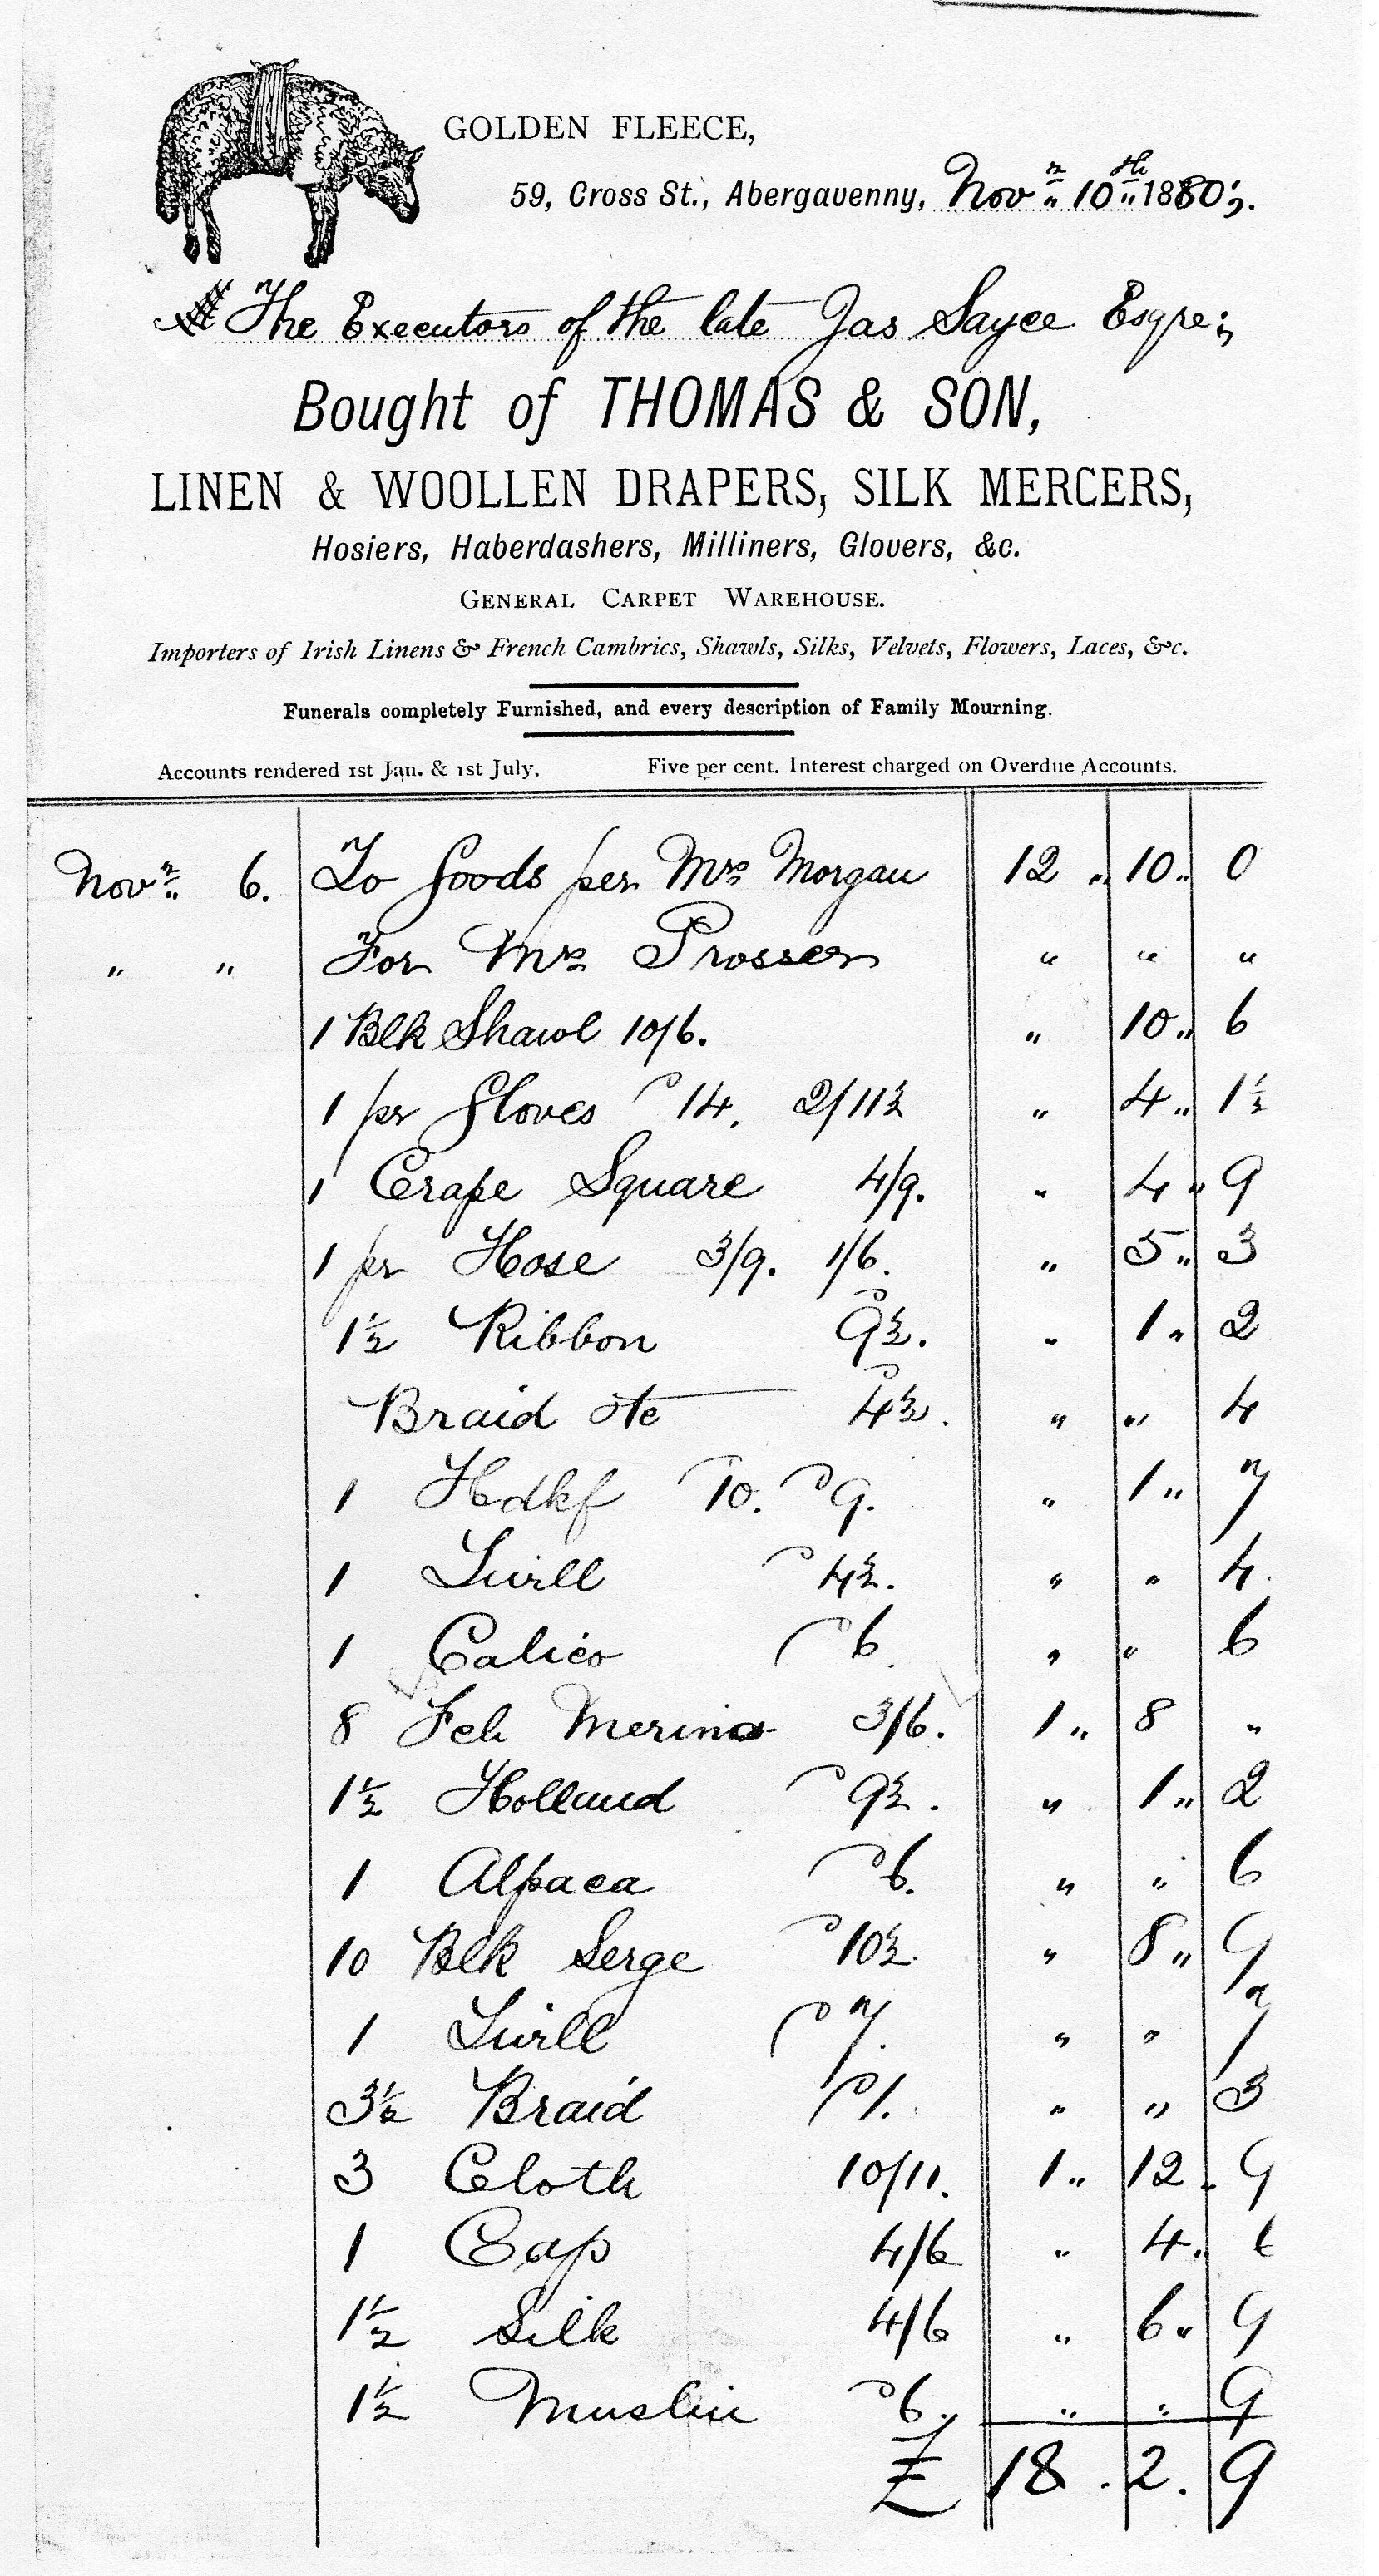 GOLDEN FLEECE,
59, Cross St., Abergavenny, Novr 10th 1880
The Executors of the late Jas Sayce Esqre
Bought of THOMAS & SON,
LINEN & WOOLLEN DRAPERS, SILK MERCERS,
Hosiers, Haberdashers, Milliners, Glovers, &c.
GENERAL CARPET WAREHOUSE.
Importers of Irish Linens & French Cambrics, Shawls, Silks, Velvets, Flowers, Laces, &c.
Funerals completely Furnished, and every description of Family Mourning.
Accounts rendered 1st Jan. & 1st July. Five per cent. Interest charged on Overdue Accounts.
Novr 6. To Goods per Mrs Morgan 12 " 10 " 0
" " For Mrs Prosser " " "
1 Blk Shawl 10/6. " 10 " 6
1 pr Gloves 14. 2/11½ " 4 " 1½
1 Crape Square 4/9. " 4 " 9
1 pr Hose 3/9. 1/6. " 5 " 3
1½ Ribbon 9½. " 1 " 2
Braid 4½. " " 4
1 Hdkf 10. 9. " 1 " 7
1 Twill 4½. " " 4
1 Calico 6. " " 6
8 Fch Merino 3/6. 1 " 8 "
1½ Holland 9½. " 1 " 2
1 Alpaca 6. " " 6
10 Blk Serge 10½. " 8 " 9
1 Twill 7. " " 7
3½ Braid 1. " " 3
3 Cloth 10/11. 1 " 12 " 9
1 Cap 4/6 " 4 " 6
1½ Silk 4/6 " 6 " 9
1½ Muslin 6. " " 9
£ 18 . 2 . 9